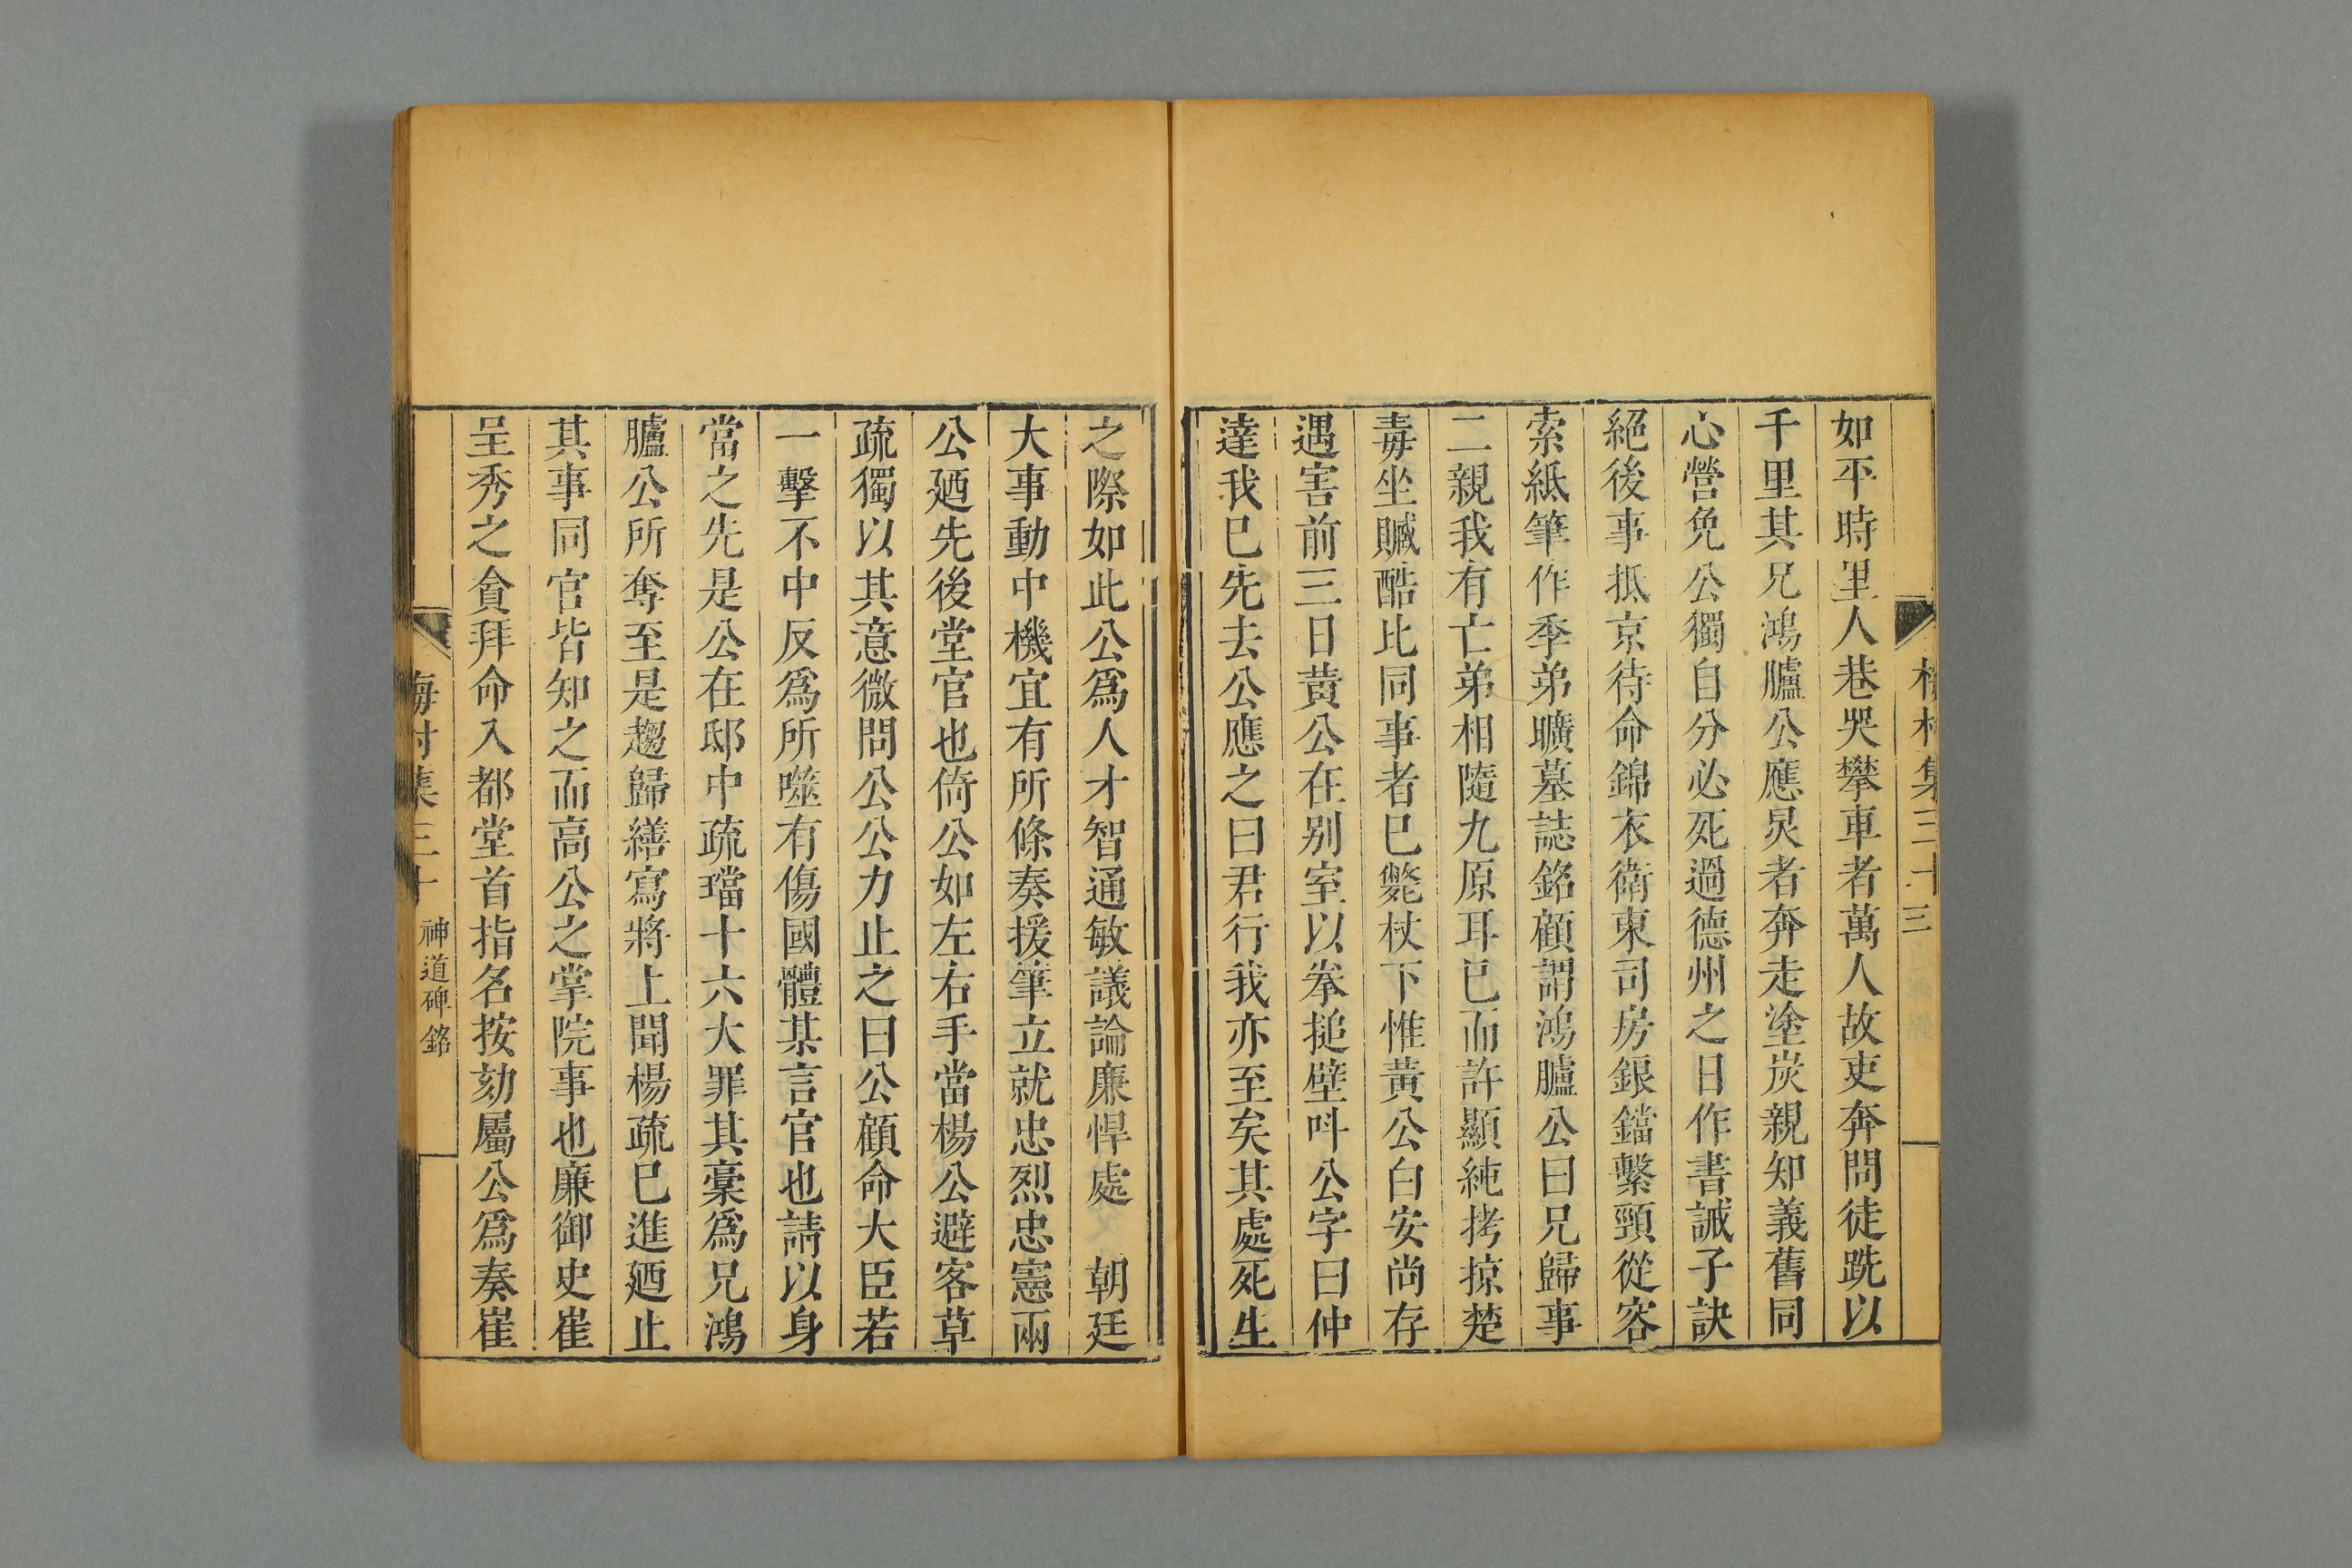 梅村集三十三
如平時里人巷哭攀車者萬人故吏奔問徒跣以
千里其兄鴻臚公應炅者奔走塗炭親知義舊同
心營免公獨自分必死過德州之日作書誡子訣
絕後事抵京待命錦衣衛東司房鋃鐺繫頸從容
索紙筆作季弟曠墓誌銘顧謂鴻臚公曰兄歸事
二親我有亡弟相隨九原耳已而許顯純拷掠楚
毒坐贓酷比同事者巳斃杖下惟黃公白安尚存
遇害前三日黄公在别室以拳搥壁呌公字曰仲
達我巳先去公應之曰君行我亦至矣其處死生
之際如此公爲人才智通敏議論廉悍處　朝廷
大事動中機宜有所條奏援筆立就忠烈忠憲兩
公廼先後堂官也倚公如左右手當楊公避客草
疏獨以其意微問公公力止之曰公顧命大臣若
一擊不中反爲所噬有傷國體某言官也請以身
當之先是公在邸中疏璫十六大罪其稾爲兄鴻
臚公所奪至是趨歸繕寫將上聞楊疏巳進廼止
其事同官皆知之而高公之掌院事也廉御史崔
呈秀之貪拜命入都堂首指名按劾屬公爲奏崔
梅村集三十 神道碑銘